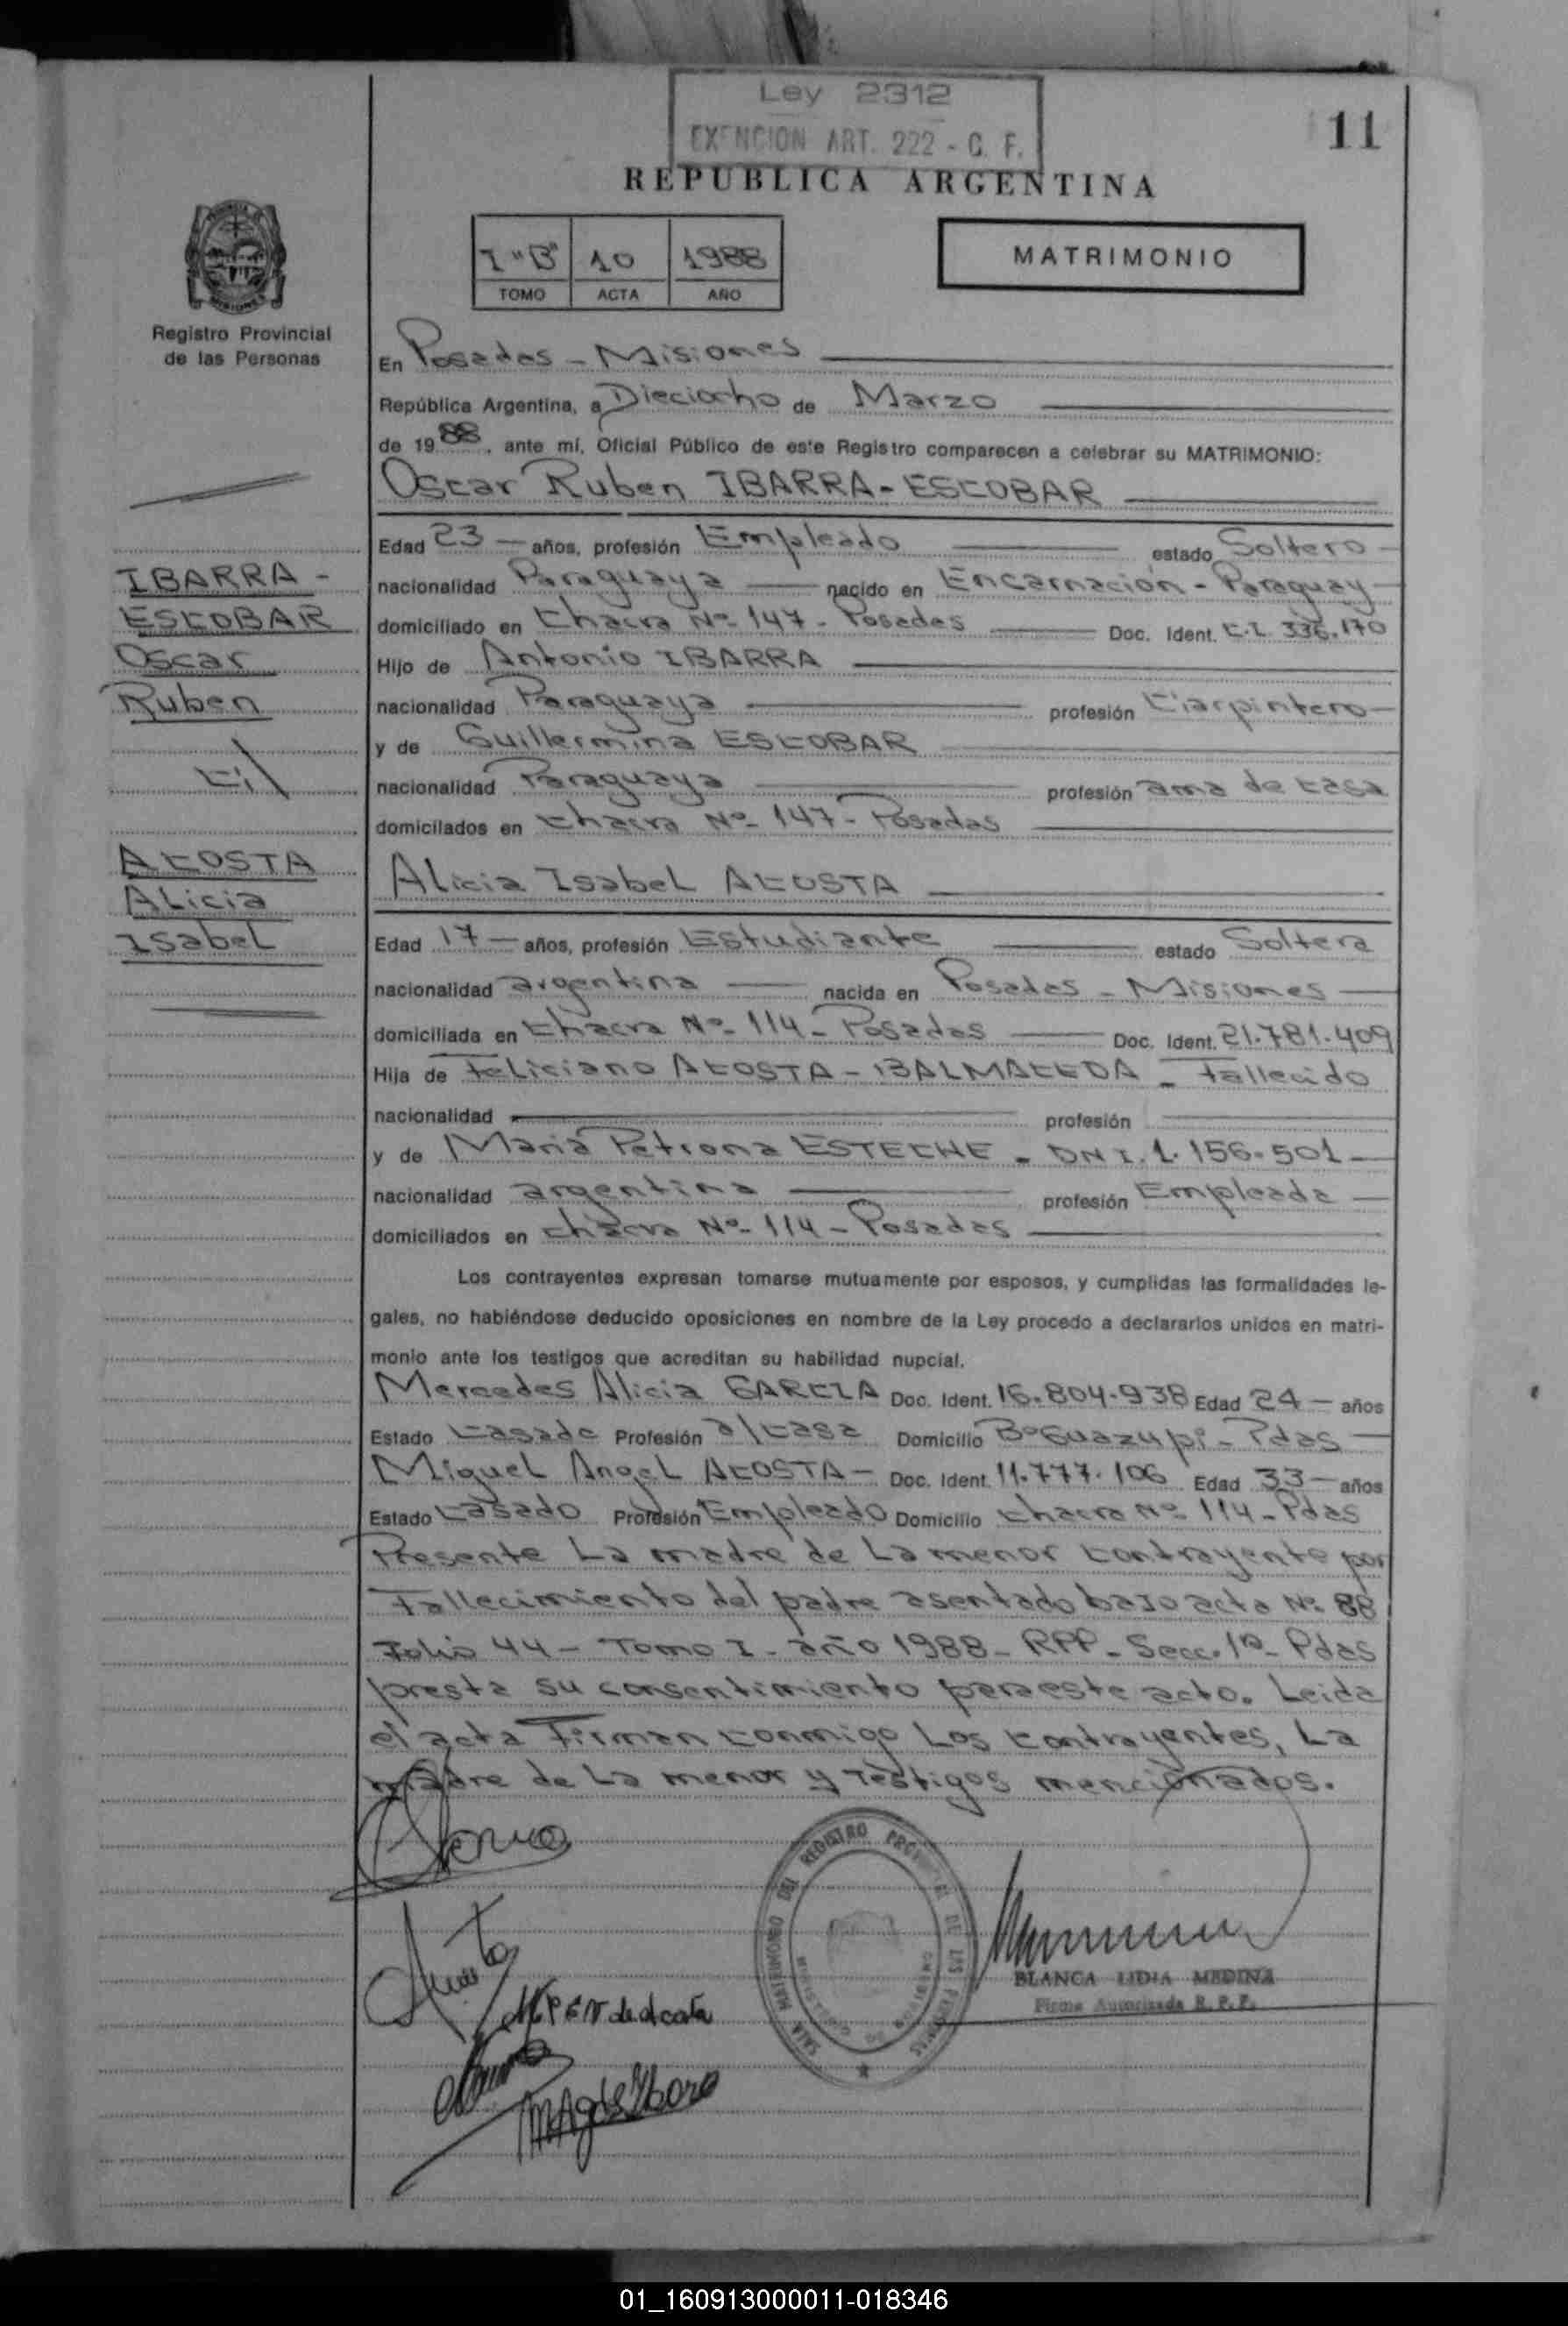 Ley 2312
EXENCION ART. 222 - C. F.
11
REPUBLICA ARGENTINA
I "B" 10 1988
TOMO ACTA AÑO
MATRIMONIO
Registro Provincial
de las Personas
En Posadas - Misiones
República Argentina, a Dieciocho de Marzo
de 1988, ante mí, Oficial Público de este Registro comparecen a celebrar su MATRIMONIO:
Oscar Ruben IBARRA - ESCOBAR
Edad 23 - años, profesión Empleado estado Soltero -
nacionalidad Paraguaya nacido en Encarnación - Paraguay
domiciliado en Chacra Nº 147 - Posadas Doc. Ident. C.I. 336.170
Hijo de Antonio IBARRA
nacionalidad Paraguaya profesión Carpintero -
y de Guillermina ESCOBAR
nacionalidad Paraguaya profesión ama de casa
domicilados en Chacra Nº 147 - Posadas
Alicia Isabel ACOSTA
Edad 17 - años, profesión Estudiante estado Soltera
nacionalidad argentina nacida en Posadas - Misiones
domiciliada en Chacra Nº 114 - Posadas Doc. Ident. 21.781.409
Hija de Feliciano ACOSTA - BALMACEDA - Fallecido
nacionalidad profesión
y de Maria Petrona ESTECHE - DNI. 1.156.501 -
nacionalidad argentina profesión Empleada
domiciliados en Chacra Nº 114 - Posadas
Los contrayentes expresan tomarse mutuamente por esposos, y cumplidas las formalidades le-
gales, no habiéndose deducido oposiciones en nombre de la Ley procedo a declararlos unidos en matri-
monio ante los testigos que acreditan su habilidad nupcial.
Mercedes Alicia GARCIA Doc. Ident. 16.804.938 Edad 24 - años
Estado Casada Profesión a/casa Domicilio Bº Guazupi - Pdas
Miguel Angel ACOSTA - Doc. Ident. 11.777.106 Edad 33 - años
Estado Casado Profesión Empleado Domicilio Chacra Nº 114 - Pdas
Presente La madre de La menor contrayente por
Fallecimiento del padre asentado bajo acta Nº 88
Folio 44 - Tomo I - año 1988 - RPP - Secc. 1ª - Pdas
presta su consentimiento para este acto. Leida
el acta Firman conmigo Los contrayentes, La
madre de La menor y Testigos mencionados.
IBARRA -
ESCOBAR
Oscar
Ruben
c/
ACOSTA
Alicia
Isabel
SALA MATRIMONIO DEL REGISTRO PROVINCIAL DE LAS PERSONAS
BLANCA LIDIA MEDINA
Firma Autorizada R. P. P.
de Acosta
01_160913000011-018346